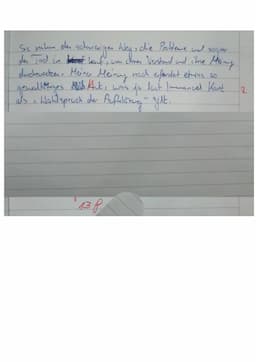 Sie nehmen den schwierigen Weg, die Probleme und sogar
den Tod in Kauf, um ihren Verstand und ihre Meinung
durchzusetzen. Meiner Meinung nach erfordert etwas so
gewaltiges Mut, was ja laut Immanuel Kant
als "Wahlspruch der Aufklärung" gilt.
2